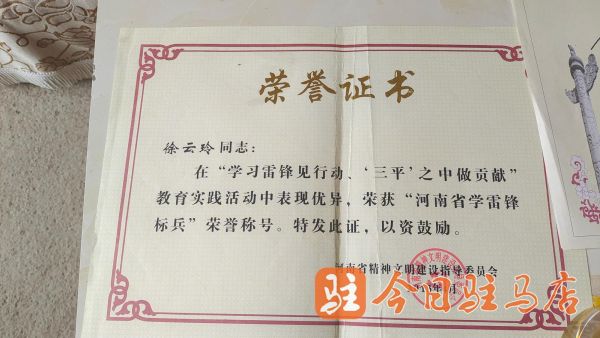 荣誉证书
徐云玲同志：
在“学习雷锋见行动、‘三平’之中做贡献”
教育实践活动中表现优异，荣获“河南省学雷锋
标兵”荣誉称号。特发此证，以资鼓励。
河南省精神文明建设指导委员会
驻 今日驻马店